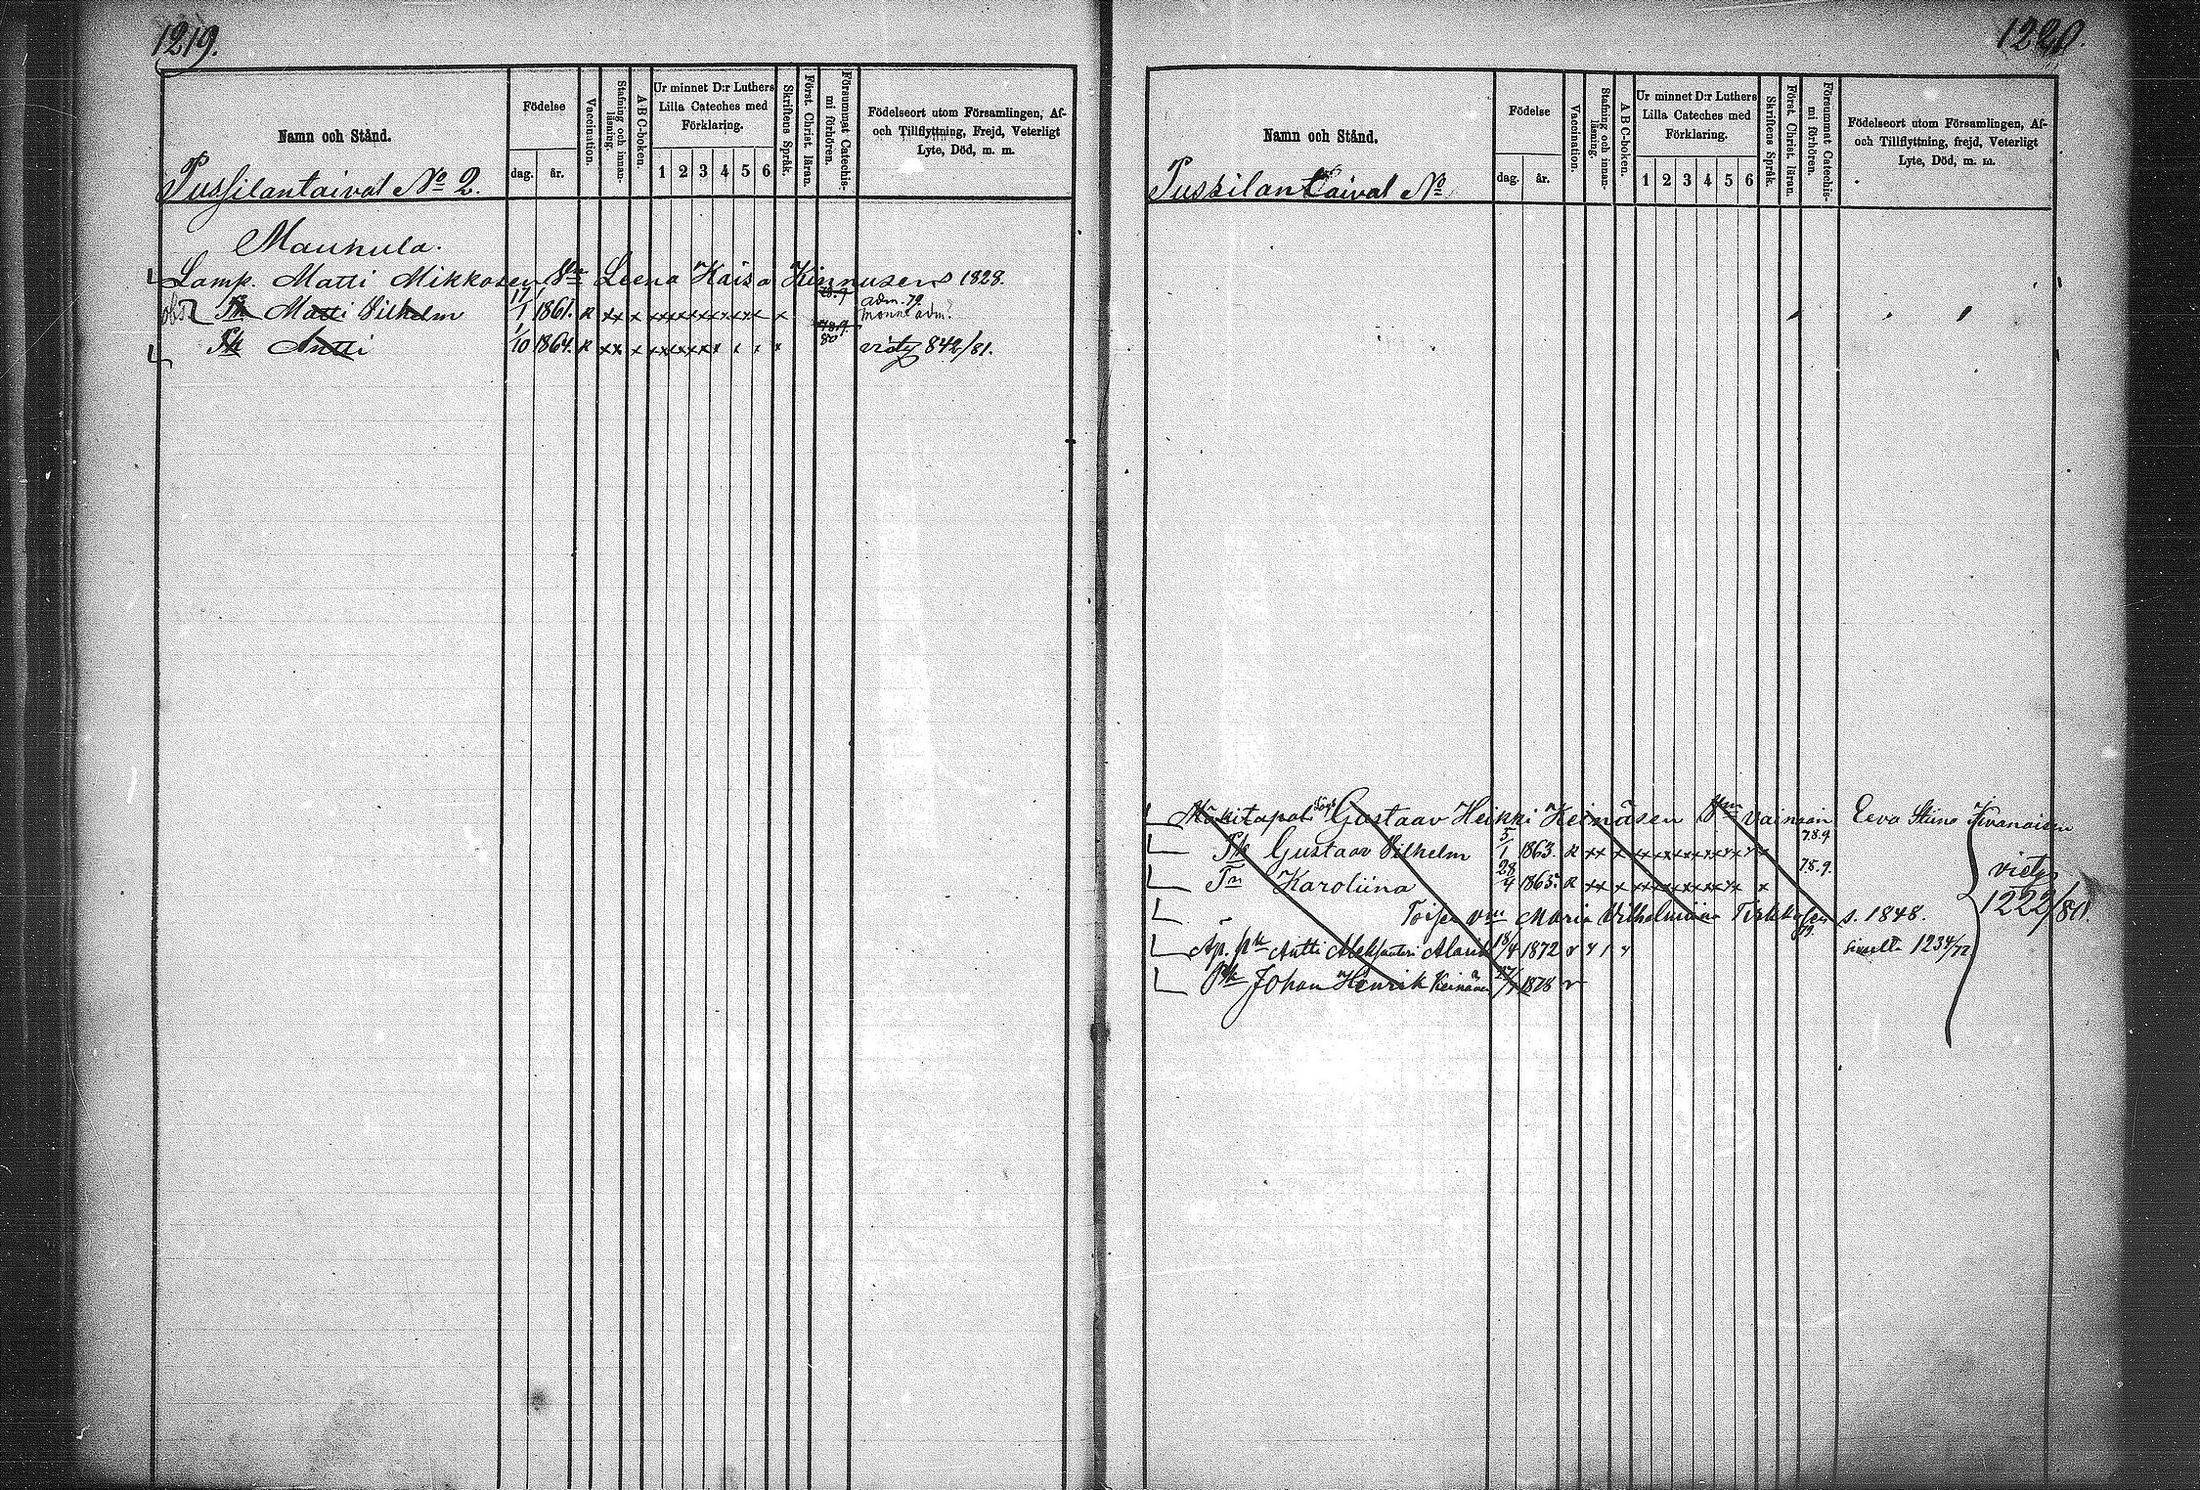 1219.
Namn och Stånd.
Födelse
dag.
år.
Vaccination.
Stafning och innan-läsning.
A B C-boken.
Ur minnet D:r Luthers
Lilla Cateches med
Förklaring.
1 2 3 4 5 6
Skriftens Språk.
Först. Christ. läran.
Försummat Catechis-
mi förhören.
Födelseort utom Församlingen, Af-
och Tillflyttning, Frejd, Veterligt
Lyte, Död, m. m.
Pussilantaival No 2.
Mauhula.
Lamp. Matti Mikkosen Vm Leena Kaisa Kinnusen s 1828.
Pk Matti Vilhelm 17/1 1861. R xx x xxxxxxxxxxx x 78.9 adm. 79.
Pk Antti 1/10 1864. R xx x xxxxxxx x x x 78.9. 80 victy 842/81.
1220.
Namn och Stånd.
Födelse
dag.
år.
Vaccination.
Stafning och innan-läsning.
A B C-boken.
Ur minnet D:r Luthers
Lilla Cateches med
Förklaring.
1 2 3 4 5 6
Skriftens Språk.
Först. Christ. läran.
Försummat Catechis-
mi förhören.
Födelseort utom Församlingen, Af-
och Tillflyttning, frejd, Veterligt
Lyte, Död, m. m.
Pussilantaival No
Mökitapali Gustaav Heikki Keinäsen Vm vainaan Eeva Stiina Kivanaisen
Pk Gustaav Vilhelm 5/1 1863. R xx x xxxxxxxxxxx x 78.9
Tn Karoliina 28/4 1865. R xx x xxxxxxxxxxx x 78.9.
victy
1222/80.
Toisen vm Maria Vilhelmiina s. 1848.
Äp. pk Antti Aleksanteri 18/4 1872 1234/72
Pk Johan Henrik Keinänen 27/1 1878